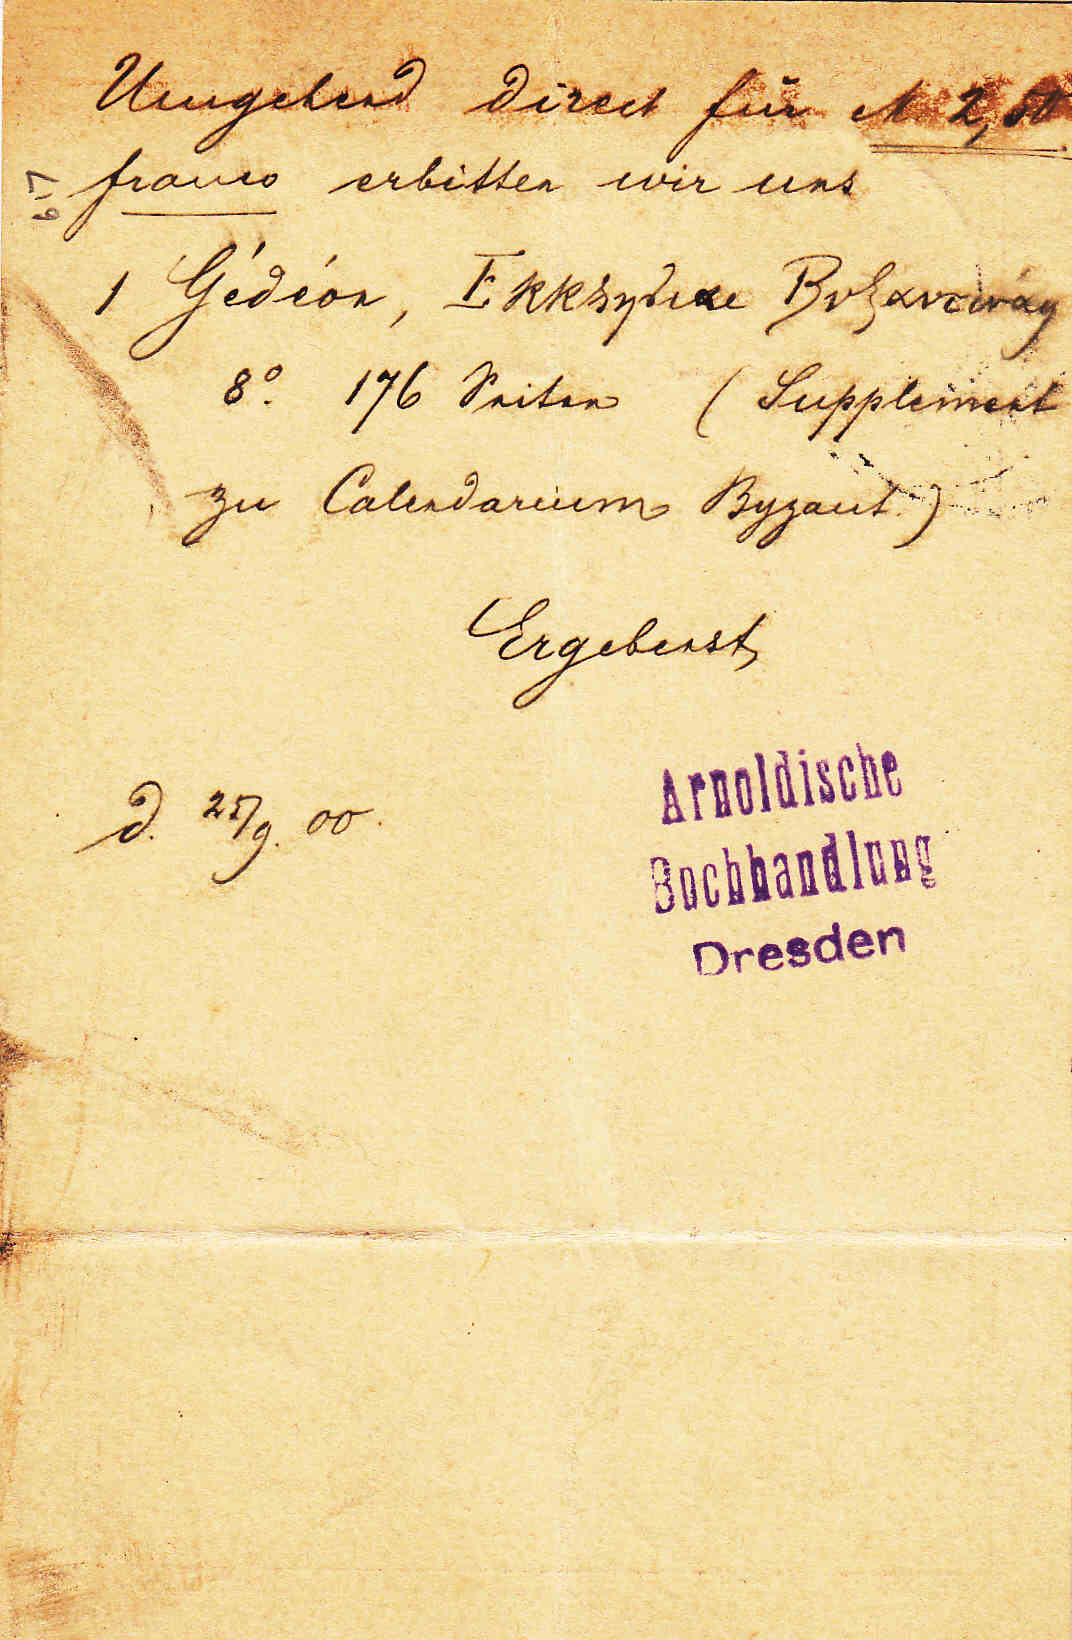 Umgehend direct für M 2,50
franco erbitten wir uns
1 Gédéon, Ekkhydiae Βυζαντινάς
8°. 176 Seiten (Supplement
zu Calendarium Byzant.)
Ergebenst
d. 25/9. 00.
Arnoldische
Buchhandlung
Dresden